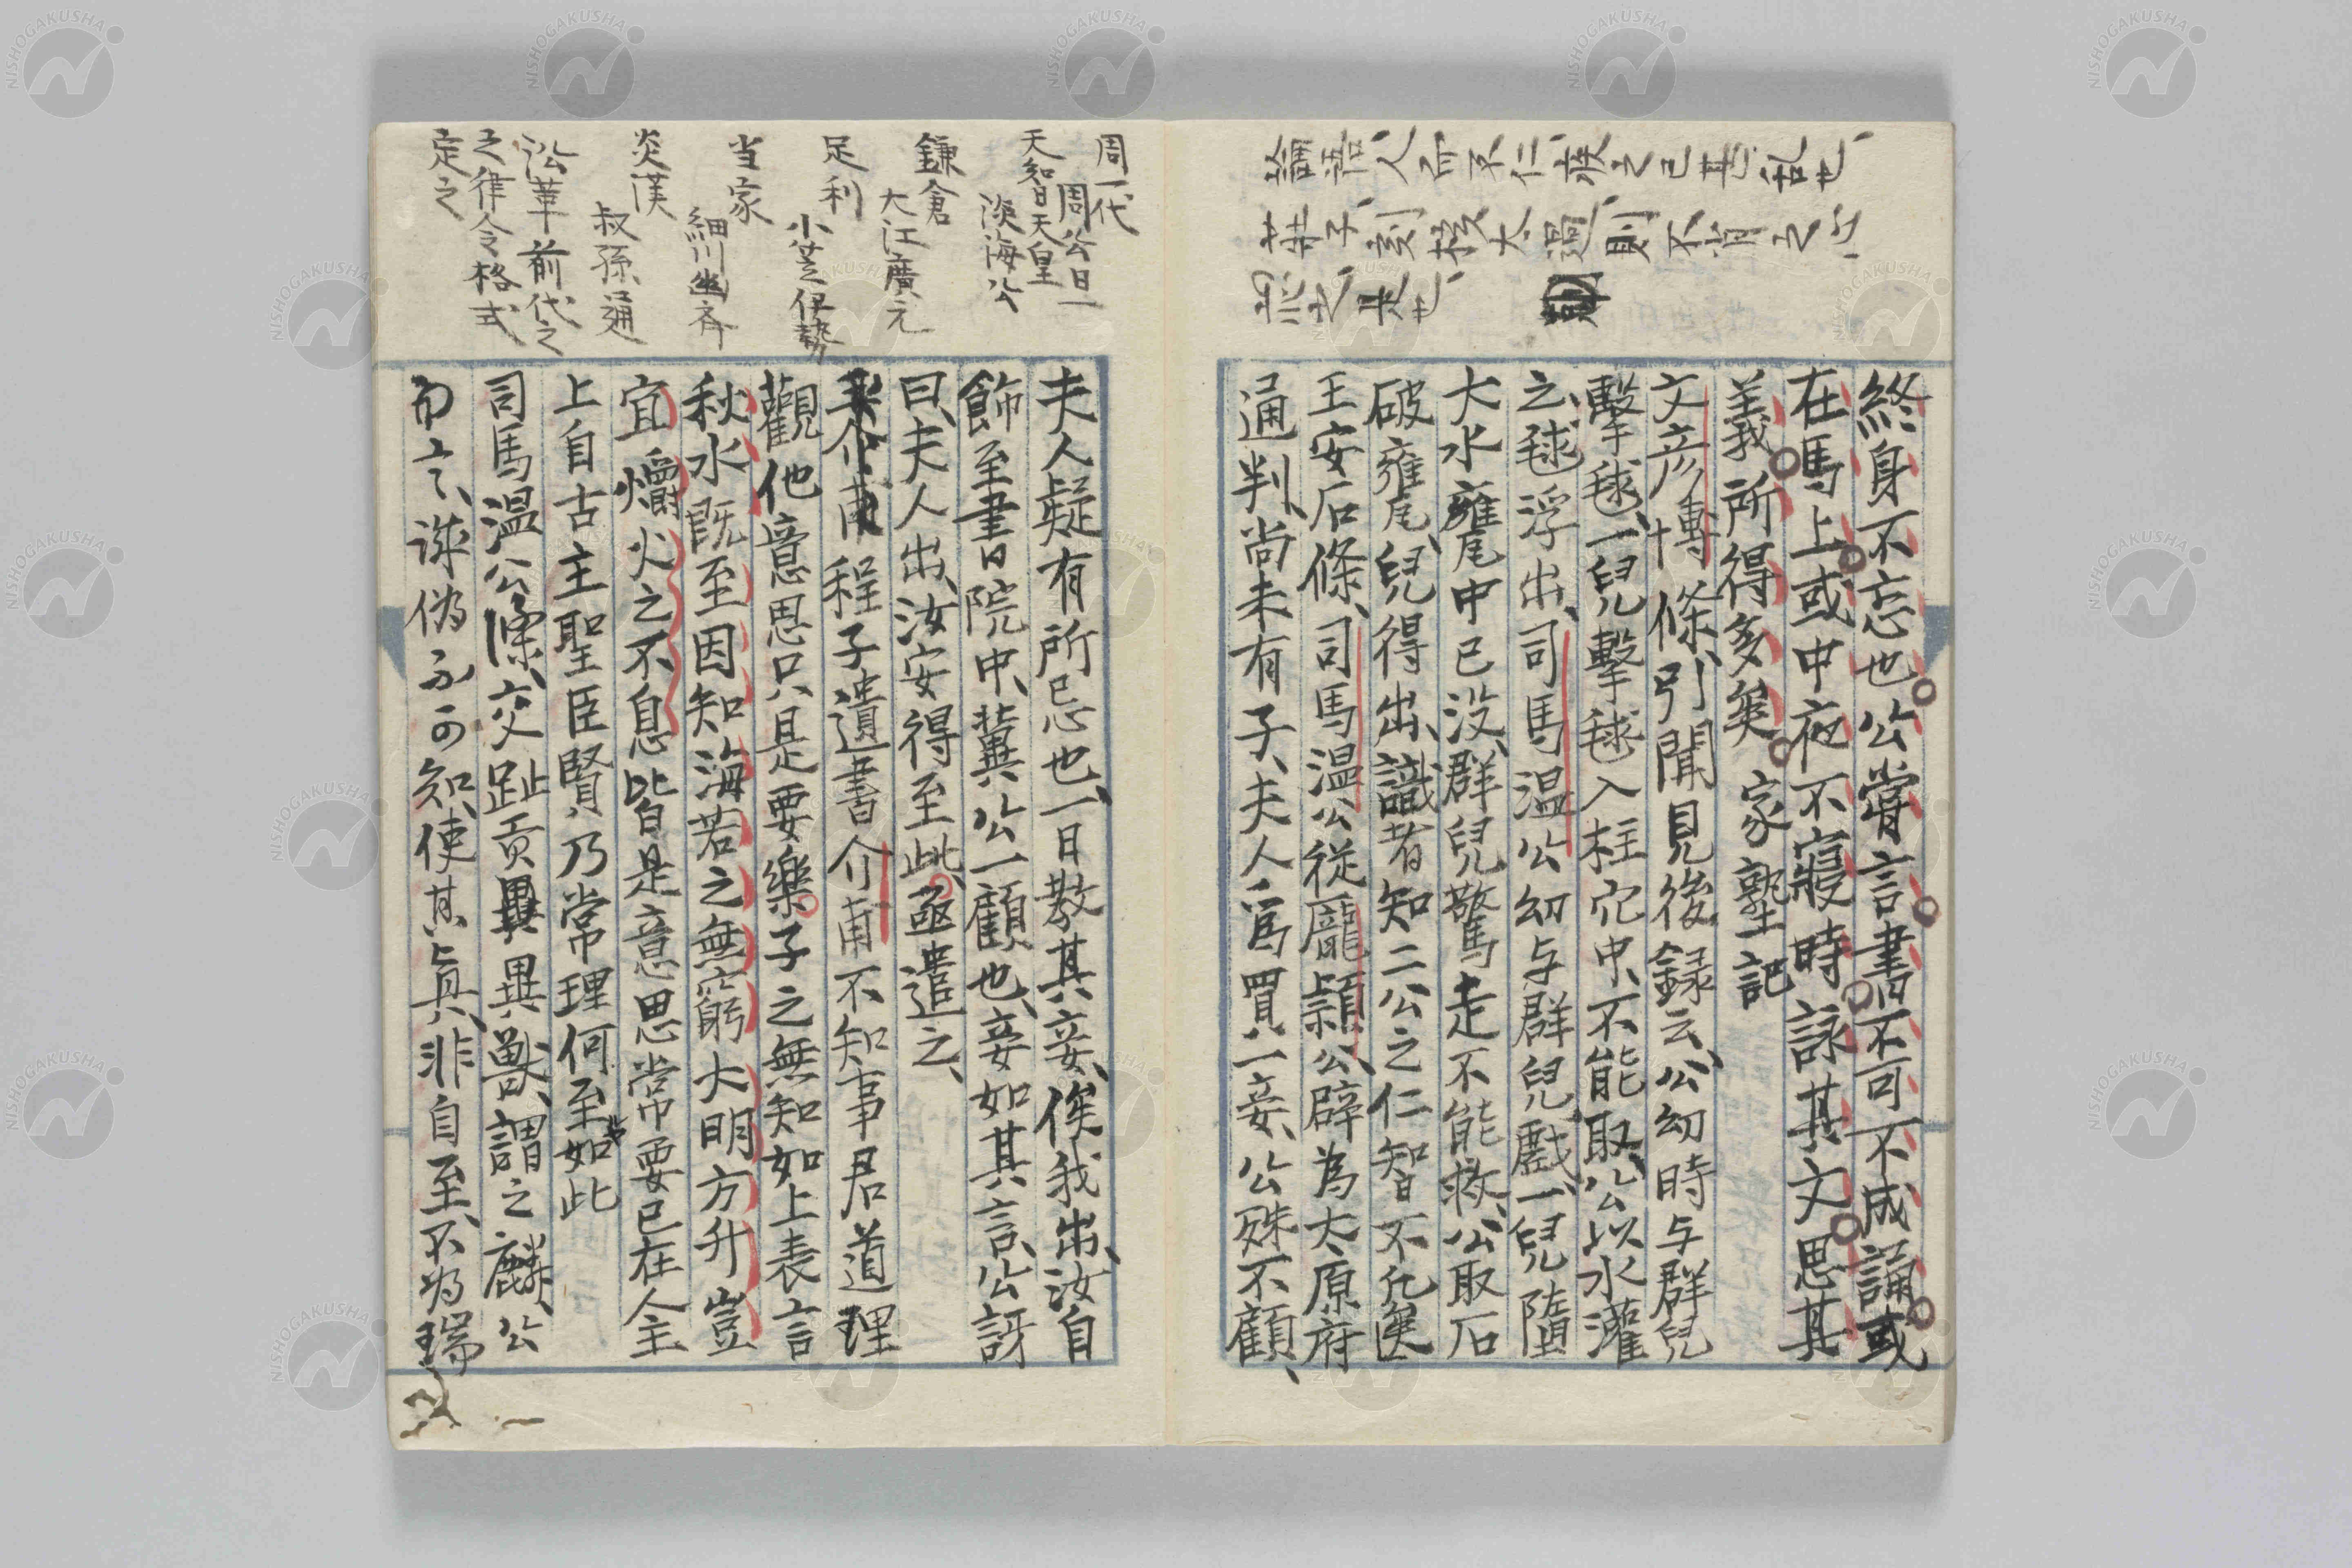 論語、人而不仁、疾之已甚、乱也、
荘子、刻核太過、則不肖之心
応之、是也、
終身不忘也公嘗言書不可不成誦或
在馬上或中夜不寢時詠其文思其
義所得多矣　家塾記
文彦博條、引聞見後録云、公幼時与群兒
擊毬、一兒擊毬入柱穴中、不能取、公以水灌
之、毬浮出、司馬温公幼与群兒戲、一兒墮
大水甕中已没、群兒驚走不能救、公取石
破甕、兒得出、識者知二公之仁智不凡矣
王安石條、司馬温公從龐頴公辟為太原府
通判、尚未有子、夫人爲買一妾、公殊不顧、
周一代
周公旦一
天智天皇
淡海公
鎌倉
大江廣元
足利
小笠伊勢
当家
細川幽斉
炎漢
叔孫通
訟革前代之
之律令格式
定之
夫人疑有所忌也、一日教其妾、俟我出、汝自
飾至書院中、冀公一顧也、妾如其言、公訝
曰、夫人出、汝安得至此、亟遣之、
程子遺書介甫不知事君道理
觀他意思只是要樂子之無知如上表言
秋水既至因知海若之無窮大明方升豈
宜爝火之不息皆是意思常要已在人主
上自古主聖臣賢乃常理何至如此
司馬温公條、交趾貢異獸、謂之麟、公
曰言、謀偽不可知、使其真、非自至、不為瑞